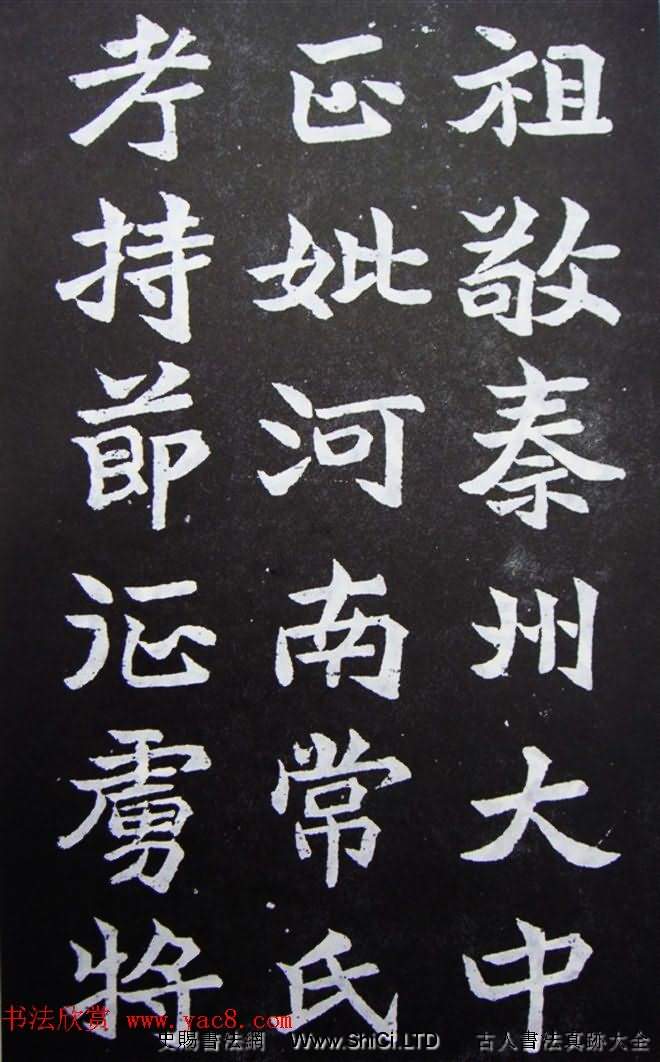 祖敬秦州大中
正妣河南常氏
考持節征虜將
书法欣赏 www.yac8.com
史賜書法網 Www.ShiCi.LTD 古人書法真跡大全